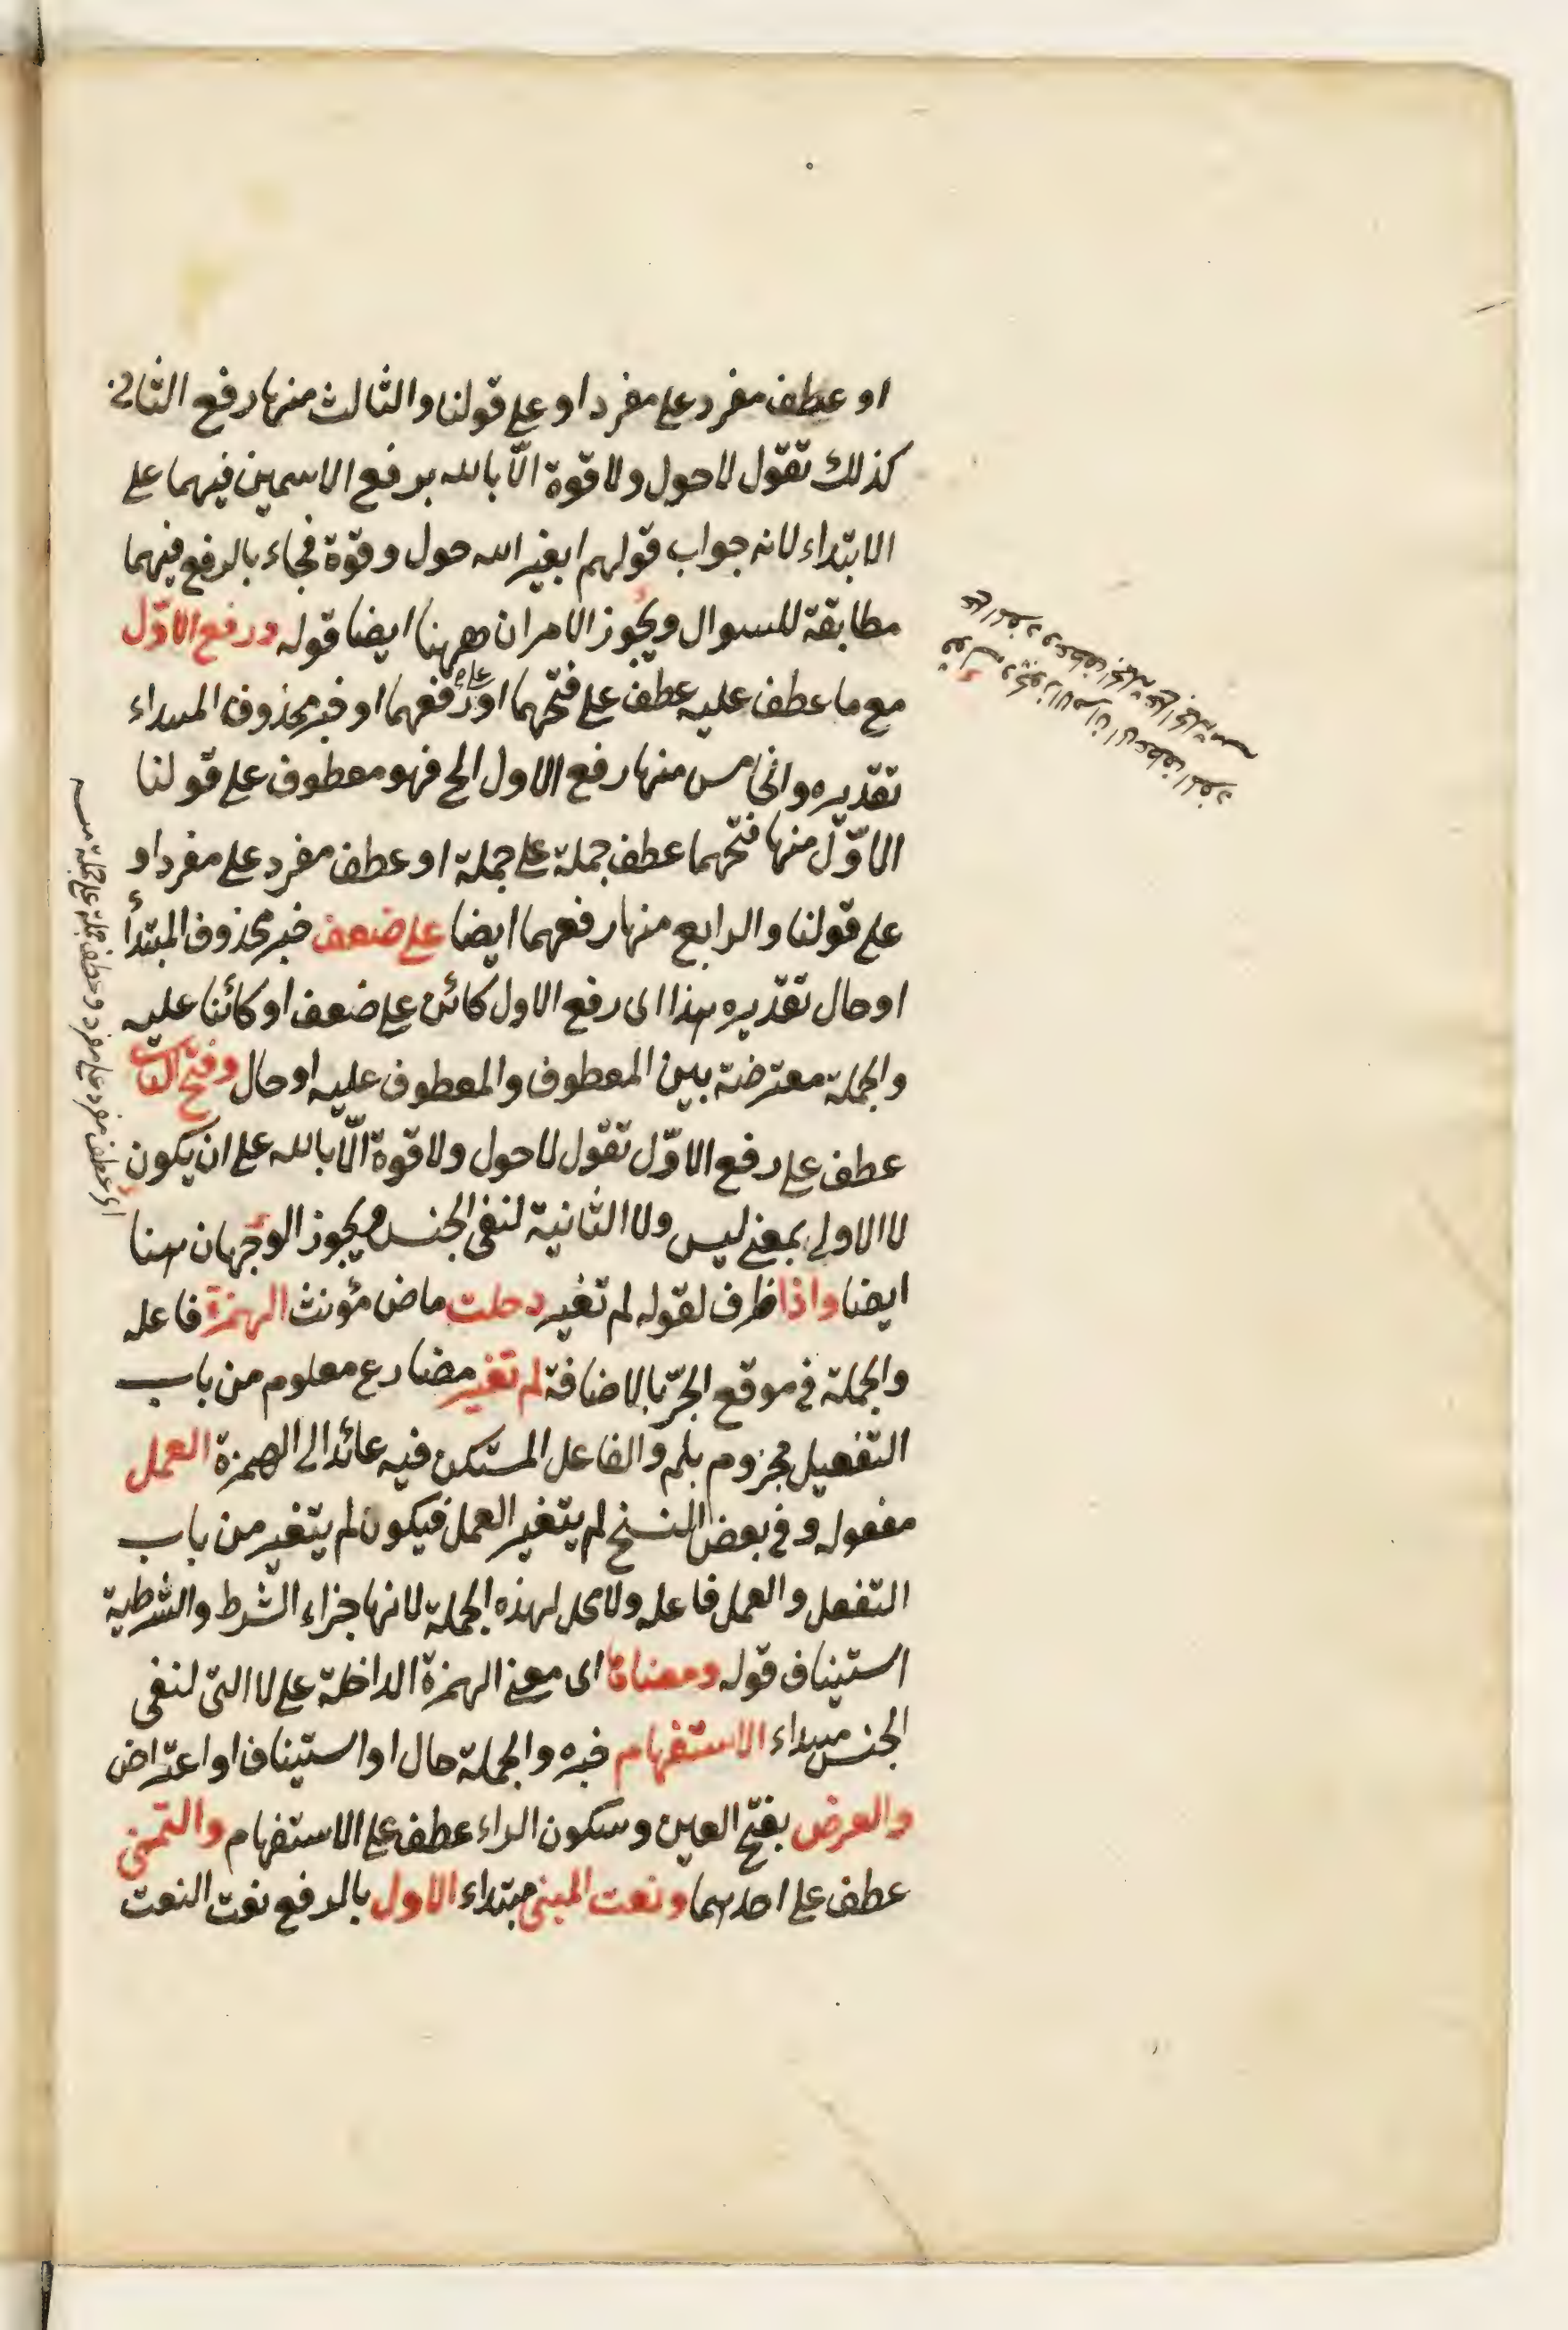 او عطف مفرد على مفرد او على قولنا والثالث منها رفع الثانى
كذلك تقول لا حول ولا قوة الّا بالله برفع الاسمين فيهما على
الابتداء لانه جواب قولهم ابغير الله حول وقوة فجاء بالرفع فيهما
مطابقة للسوال ويجوز الامران ههنا ايضا قوله ورفع الاوّل
مع ما عطف عليه عطف على فتحهما او على رفعهما او خبر محذوف المبتداء
تقديره والخامس منها رفع الاول الخ فهو معطوف على قولنا
الاوّل منها فتحهما عطف جملة على جملة او عطف مفرد على مفرد او
على قولنا والرابع منها رفعهما ايضا على ضعف خبر محذوف المبتدأ
او حال تقديره هذا اى رفع الاول كائن على ضعف او كائنا عليه
والجملة معترضة بين المعطوف والمعطوف عليه او حال وفتح الثانى
عطف على رفع الاوّل تقول لا حول ولا قوة الّا بالله على ان يكون
لا الاولى بمعنى ليس ولا الثانية لنفى الجنس ويجوز الوجهان هنا
ايضا واذا ظرف لقوله لم تغير دخلت ماض مؤنث الهمزة فاعله
والجملة فى موقع الجرّ بالاضافة لم تغير مضارع معلوم من باب
التفعيل مجزوم بلم والفاعل المستكن فيه عائد الى الهمزة العمل
مفعوله وفى بعض النسخ لم يتغير العمل فيكون لم يتغير من باب
التفعل والعمل فاعله ولا محل لهذه الجملة لانها جزاء الشرط والشرطية
استيناف قوله ومعناها اى معنى الهمزة الداخلة على لا التى لنفى
الجنس مبتداء الاستفهام خبره والجملة حال او استيناف او اعتراض
والعرض بفتح العين وسكون الراء عطف على الاستفهام والتمنى
عطف على احدهما ونعت المبنى مبتداء الاول بالرفع نعت النعت
قوله ويجوز الامران اى عطف المفرد
على المفرد وعطف الجملة على الجملة منه
اى عطف مفرد على مفرد وعطف جملة على جملة منه